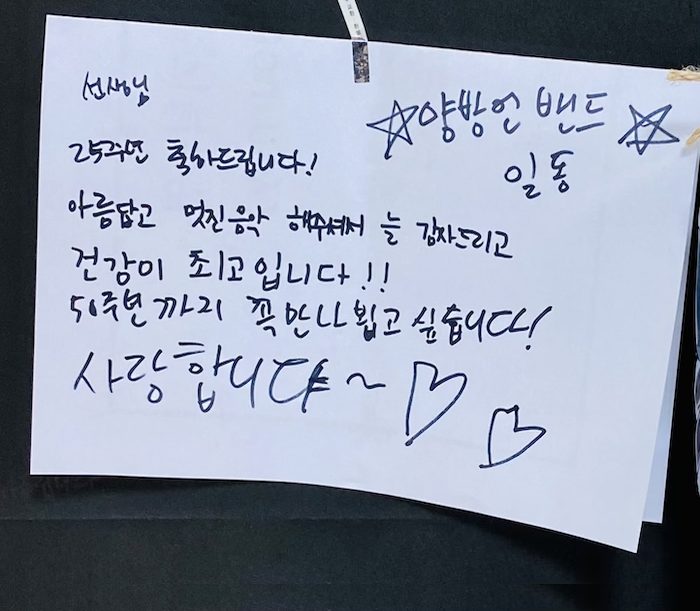 선생님
☆양방언 밴드☆
일동
25주년 축하드립니다!
아름답고 멋진음악 해주셔서 늘 감사드리고
건강이 최고입니다!!
50주년까지 꼭만나뵙고싶습니다!
사랑합니다~♡♡